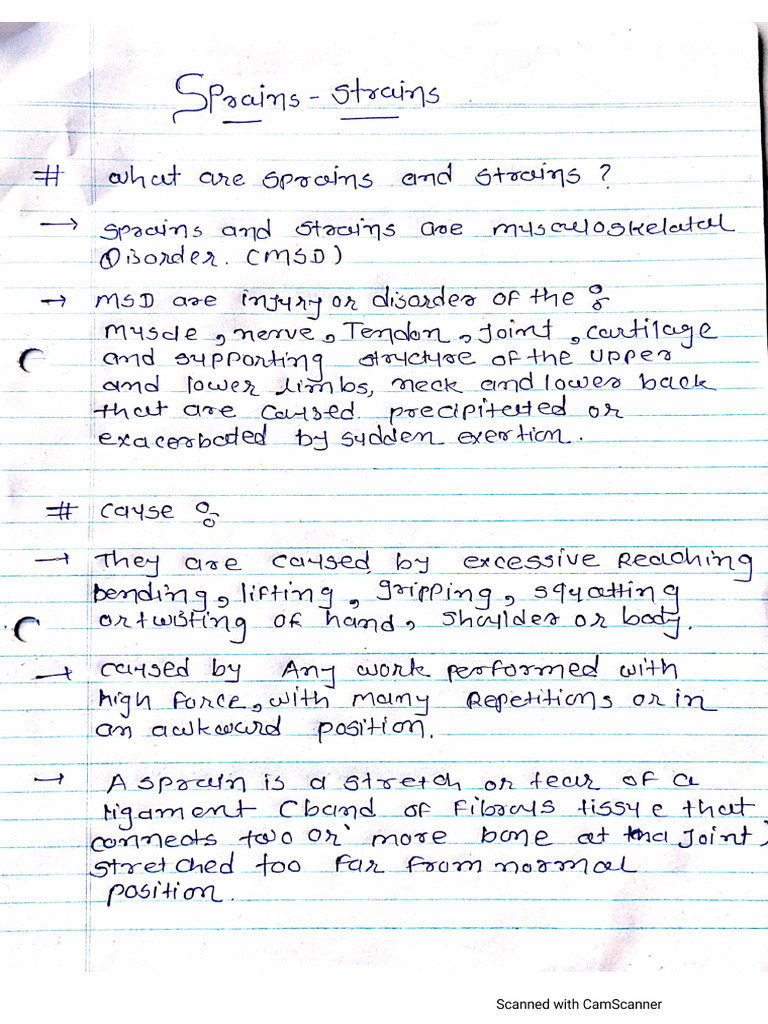 Sprains - Strains
# What are sprains and strains ?
→ Sprains and strains are musculoskeletal
Disorder. (MSD)
→ MSD are injury or disorder of the :
Muscle, nerve, Tendon, Joint, cartilage
and supporting structure of the upper
and lower limbs, neck and lower back
that are caused precipitated or
exacerbated by sudden exertion.
# Cause :
→ They are caused by excessive Reaching
bending, lifting, gripping, squatting
or twisting of hand, shoulder or body.
→ caused by Any work performed with
high force, with many Repetitions or in
an awkward position.
→ A sprain is a stretch or tear of a
ligament (band of fibrous tissue that
connects two or more bone at the Joint)
stretched too far from normal
position.
Scanned with CamScanner